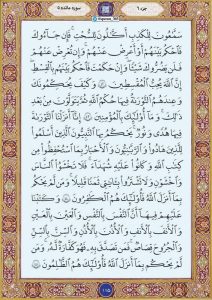 جزء ٦
سوره مائده ٥
سَمَّٰعُونَ لِلْكَذِبِ أَكَّٰلُونَ لِلسُّحْتِ فَإِن جَآءُوكَ
فَٱحْكُم بَيْنَهُمْ أَوْ أَعْرِضْ عَنْهُمْ وَإِن تُعْرِضْ عَنْهُمْ
فَلَن يَضُرُّوكَ شَيْـًٔا وَإِنْ حَكَمْتَ فَٱحْكُم بَيْنَهُم بِٱلْقِسْطِ
إِنَّ ٱللَّهَ يُحِبُّ ٱلْمُقْسِطِينَ ٤٢ وَكَيْفَ يُحَكِّمُونَكَ
وَعِندَهُمُ ٱلتَّوْرَىٰةُ فِيهَا حُكْمُ ٱللَّهِ ثُمَّ يَتَوَلَّوْنَ مِنۢ بَعْدِ
ذَٰلِكَ وَمَآ أُو۟لَٰٓئِكَ بِٱلْمُؤْمِنِينَ ٤٣ إِنَّآ أَنزَلْنَا ٱلتَّوْرَىٰةَ
فِيهَا هُدًى وَنُورٌ يَحْكُمُ بِهَا ٱلنَّبِيُّونَ ٱلَّذِينَ أَسْلَمُوا۟
لِلَّذِينَ هَادُوا۟ وَٱلرَّبَّٰنِيُّونَ وَٱلْأَحْبَارُ بِمَا ٱسْتُحْفِظُوا۟ مِن
كِتَٰبِ ٱللَّهِ وَكَانُوا۟ عَلَيْهِ شُهَدَآءَ فَلَا تَخْشَوُا۟ ٱلنَّاسَ
وَٱخْشَوْنِ وَلَا تَشْتَرُوا۟ بِـَٔايَٰتِى ثَمَنًا قَلِيلًا وَمَن لَّمْ يَحْكُم
بِمَآ أَنزَلَ ٱللَّهُ فَأُو۟لَٰٓئِكَ هُمُ ٱلْكَٰفِرُونَ ٤٤ وَكَتَبْنَا
عَلَيْهِمْ فِيهَآ أَنَّ ٱلنَّفْسَ بِٱلنَّفْسِ وَٱلْعَيْنَ بِٱلْعَيْنِ
وَٱلْأَنفَ بِٱلْأَنفِ وَٱلْأُذُنَ بِٱلْأُذُنِ وَٱلسِّنَّ بِٱلسِّنِّ
وَٱلْجُرُوحَ قِصَاصٌ فَمَن تَصَدَّقَ بِهِۦ فَهُوَ كَفَّارَةٌ لَّهُۥ وَمَن
لَّمْ يَحْكُم بِمَآ أَنزَلَ ٱللَّهُ فَأُو۟لَٰٓئِكَ هُمُ ٱلظَّٰلِمُونَ ٤٥
١١٥